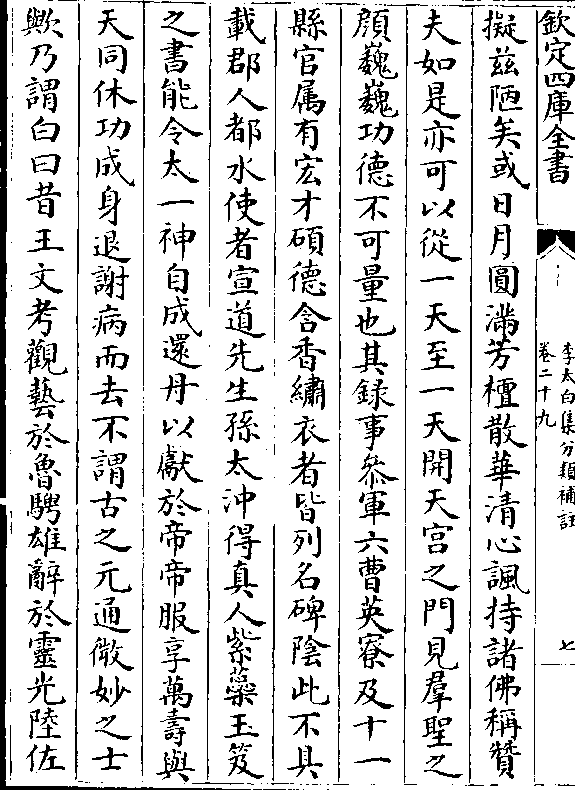 欽定四庫全書
李太白集分類補註
卷二十九
七
擬兹陋矣或日月圓滿芳檀散華清心諷持諸佛稱贊
夫如是亦可以從一天至一天開天宫之門見羣聖之
顔巍巍功德不可量也其録事叅軍六曹英寮及十一
縣官属有宏才碩德含香繡衣者皆列名碑陰此不具
載郡人都水使者宣道先生孫太沖得真人紫蘂玉笈
之書能令太一神自成還丹以獻於帝帝服享萬壽與
天同休功成身退謝病而去不謂古之元通微妙之士
歟乃謂白曰昔王文考觀藝於魯騁雄辭於靈光陸佐